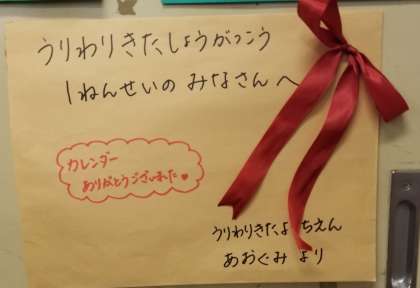 うりわりきたしょうがっこう
1ねんせいの みなさんへ
カレンダー
ありがとうございました♥
うりわりきたようちえん
あおぐみ より